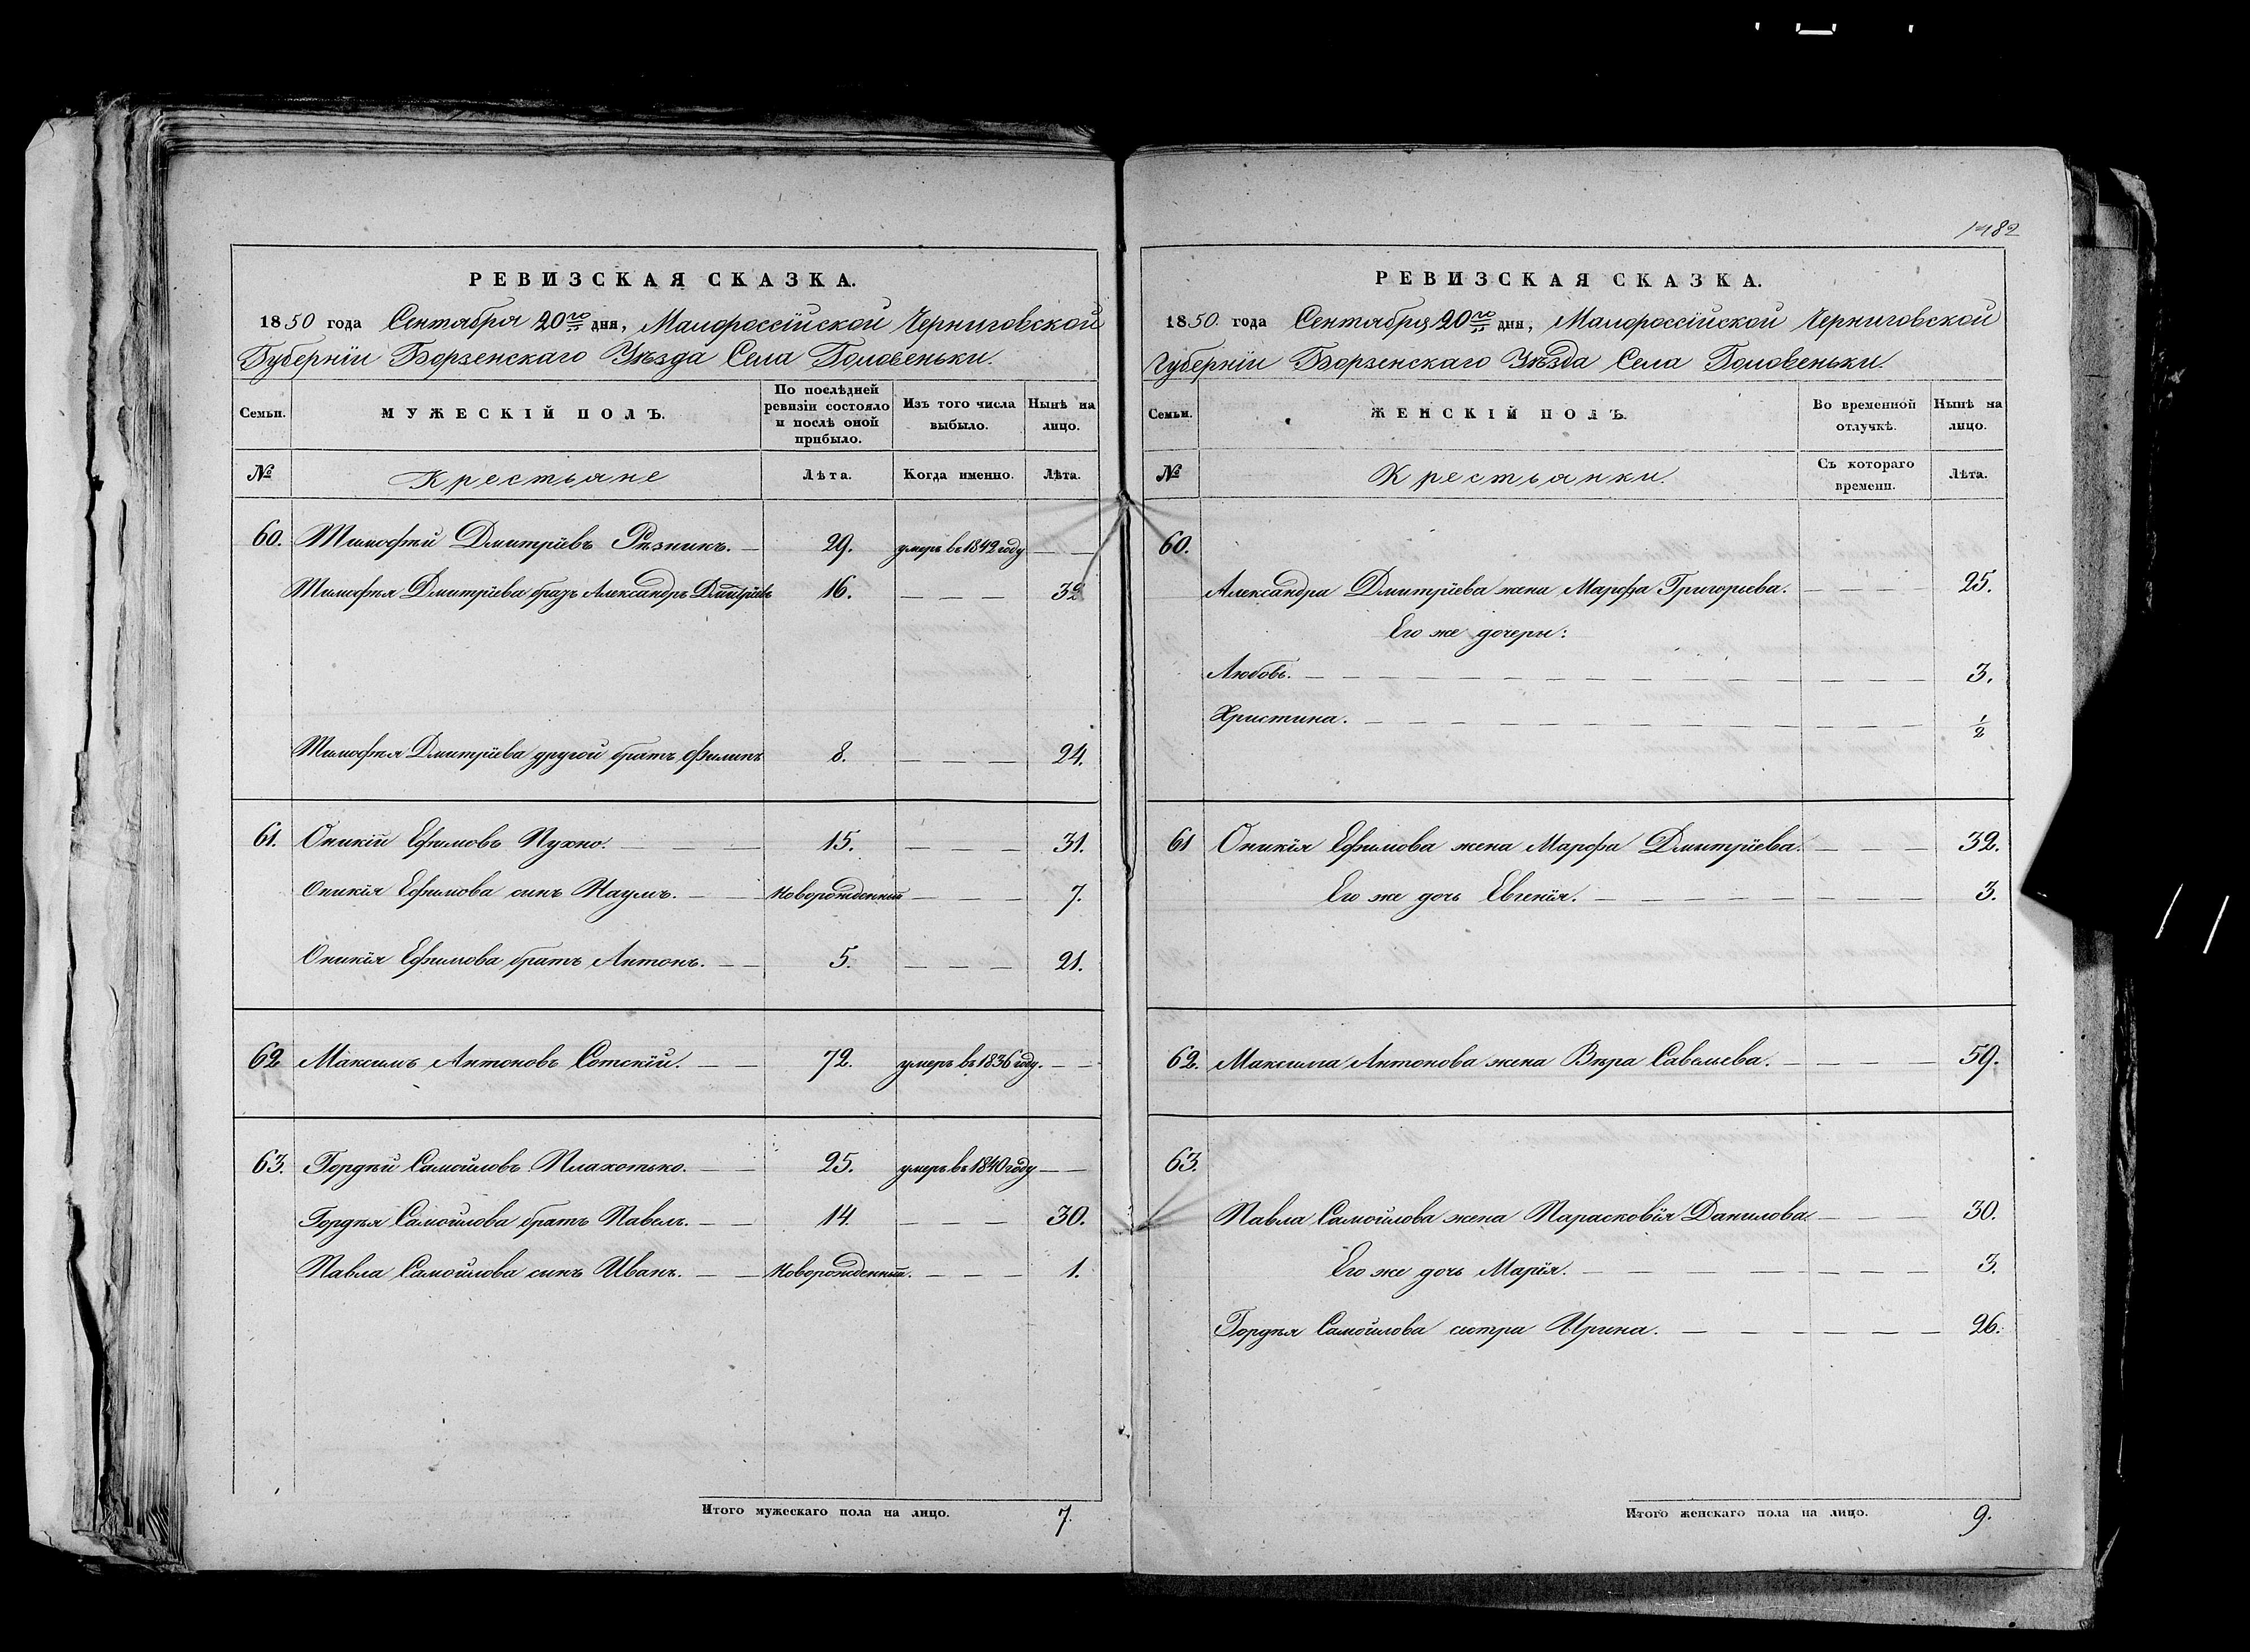 РЕВИЗСКАЯ СКАЗКА.
1850 года Сентября 20го дня, Малороссійской Черниговской
Губерніи Борзенскаго Уѣзда Села Головеньки.
Семьи.
МУЖЕСКІЙ ПОЛЪ.
По послѣдней ревизіи состояло и послѣ оной прибыло.
Изъ того числа выбыло.
Нынѣ на лицо.
№
Крестьяне
Лѣта.
Когда именно.
Лѣта.
60. Тимофѣй Дмитріевъ Рѣзникъ. — 29. умеръ въ 1842 году — —
Тимофѣя Дмитріева братъ Александръ Дмитріевъ 16. — — — 32
Тимофѣя Дмитріева другой братъ Филипъ 8. — — — 24.
61. Оникій Ефимовъ Пухно. — — — 15. — — — 31.
Оникія Ефимова сынъ Наумъ. — — Новорожденный — — — 7.
Оникія Ефимова братъ Антонъ. — — 5. — — — 21.
62 Максимъ Антоновъ Сотскій. — — 72. умеръ въ 1836 году. — —
63. Гордѣй Самойловъ Плахотько. — — 25. умеръ въ 1840 году — —
Гордѣя Самойлова братъ Павелъ. — — 14. — — — 30.
Павла Самойлова сынъ Иванъ. — — Новорожденный. — — — 1.
Итого мужескаго пола на лицо. 7.
1482
РЕВИЗСКАЯ СКАЗКА.
1850. года Сентября 20го дня, Малороссійской Черниговской
Губерніи Борзенскаго Уѣзда Села Головеньки.
Семьи.
ЖЕНСКІЙ ПОЛЪ.
Во временной отлучкѣ.
Нынѣ на лицо.
№
Крестьянки.
Съ котораго времени.
Лѣта.
60.
Александра Дмитріева жена Марфа Григорьева. — — — — 25.
Его же дочери:
Любовь. — — — 3.
Христина. — — — 1/2
61 Оникія Ефимова жена Марфа Дмитріева. — — — 32.
Его же дочь Евгенія. — — — 3.
62. Максима Антонова жена Вѣра Савельева. — — — — 59.
63.
Павла Самойлова жена Парасковія Данилова. — — — 30.
Его же дочь Марія. — — — 3.
Гордѣя Самойлова сестра Ирина. — — — 26.
Итого женскаго пола на лицо. 9.